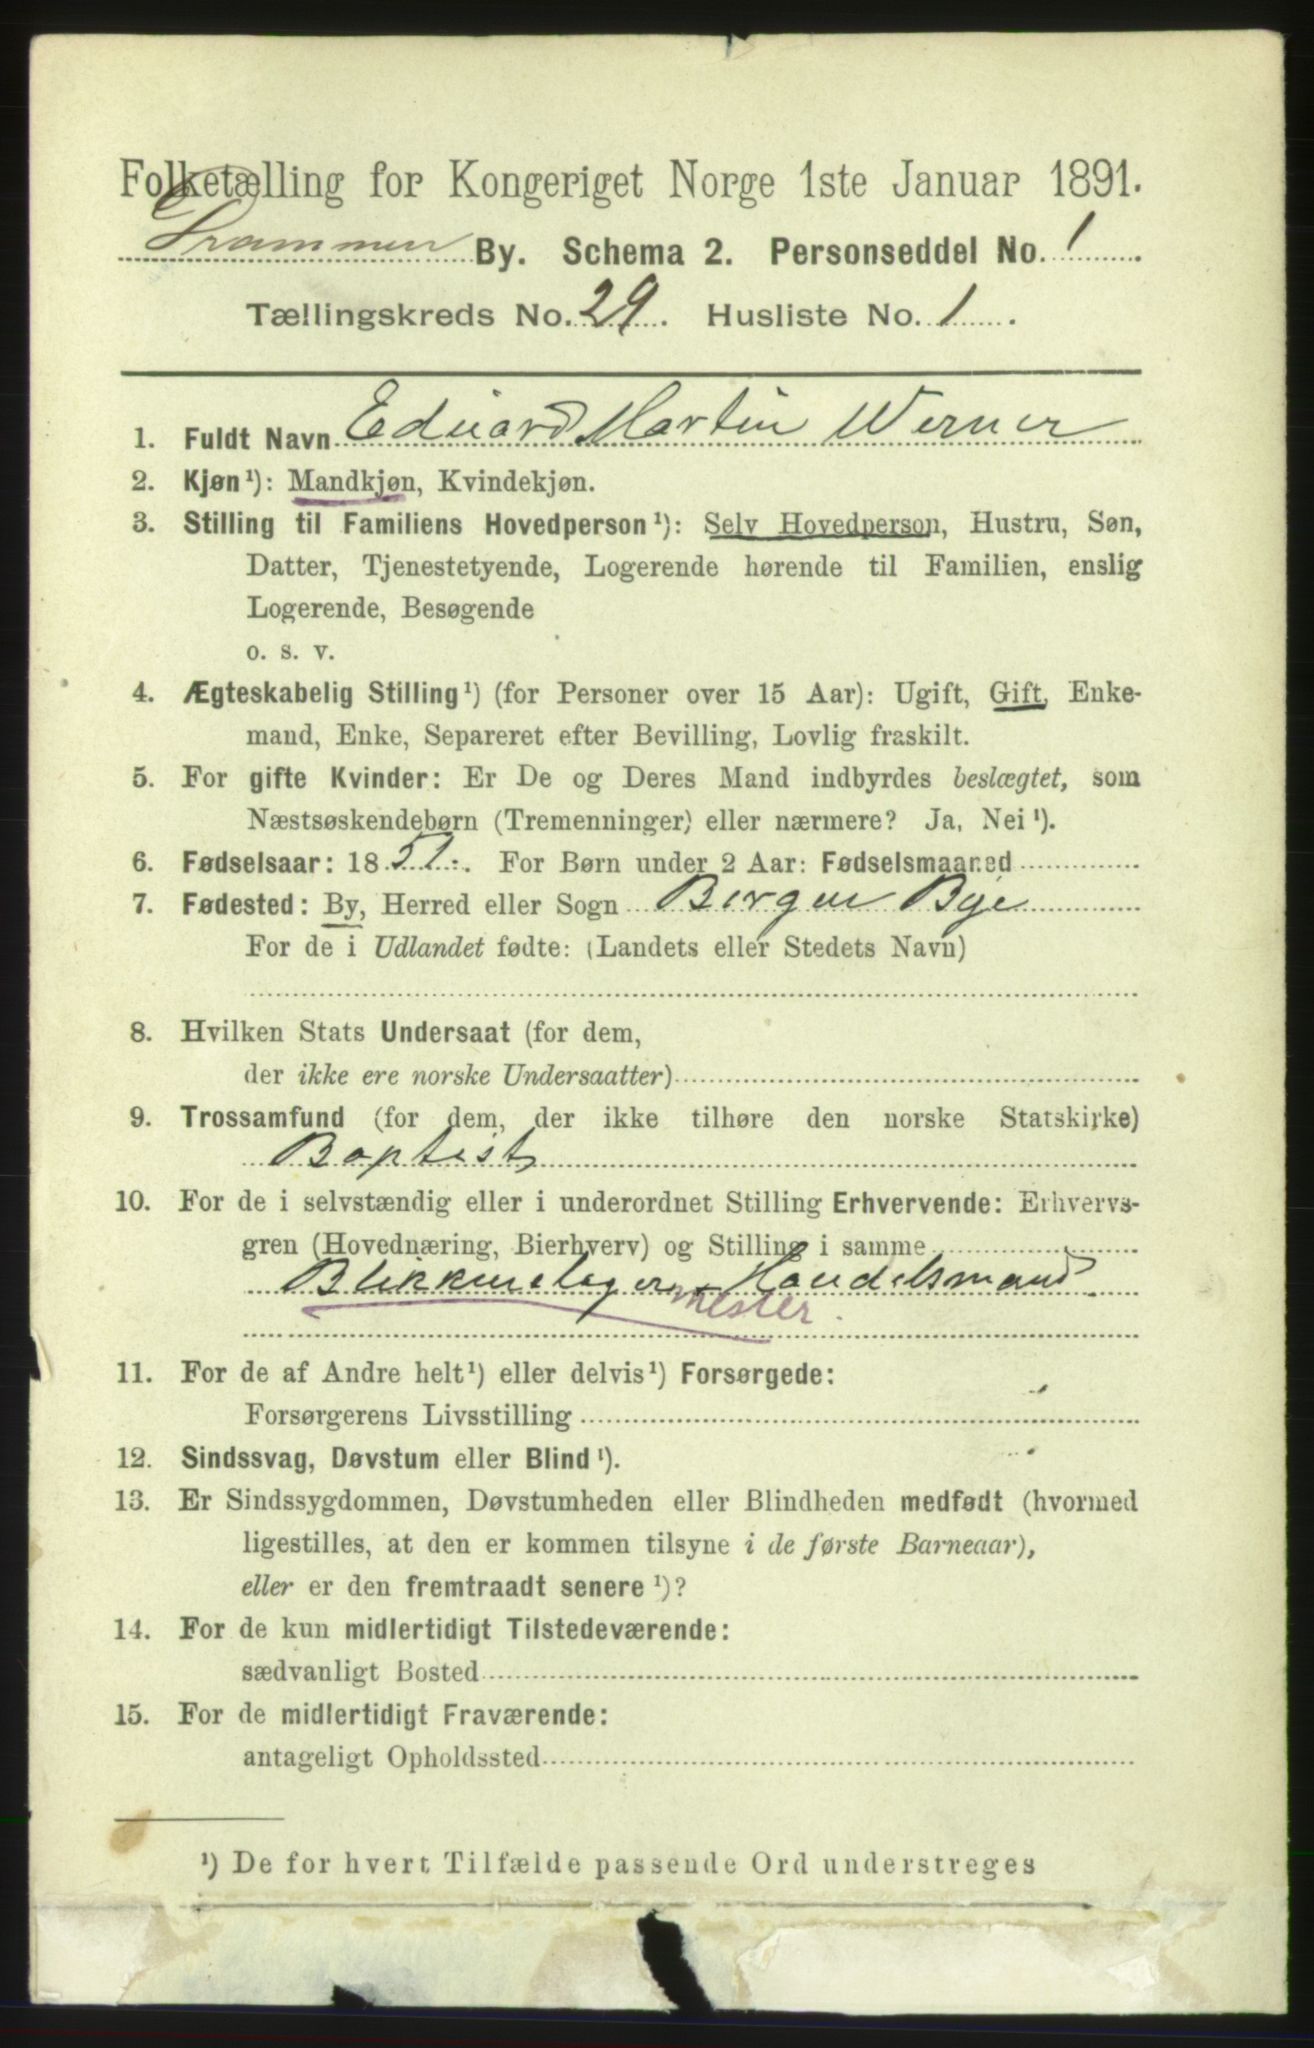 Folketælling for Kongeriget Norge 1ste Januar 1891.
Drammen By. Schema 2. Personseddel No. 1
Tællingskreds No. 29. Husliste No. 1.
1. Fuldt Navn Eduard Martin Werner
2. Kjøn¹): Mandkjøn, Kvindekjøn.
3. Stilling til Familiens Hovedperson¹): Selv Hovedperson, Hustru, Søn,
Datter, Tjenestetyende, Logerende hørende til Familien, enslig
Logerende, Besøgende
o. s. v.
4. Ægteskabelig Stilling¹) (for Personer over 15 Aar): Ugift, Gift, Enke-
mand, Enke, Separeret efter Bevilling, Lovlig fraskilt.
5. For gifte Kvinder: Er De og Deres Mand indbyrdes beslægtet, som
Næstsøskendebørn (Tremenninger) eller nærmere? Ja, Nei¹).
6. Fødselsaar: 1851. For Børn under 2 Aar: Fødselsmaaned
7. Fødested: By, Herred eller Sogn Bergen Bye
For de i Udlandet fødte: (Landets eller Stedets Navn)
8. Hvilken Stats Undersaat (for dem,
der ikke ere norske Undersaatter)
9. Trossamfund (for dem, der ikke tilhøre den norske Statskirke)
Baptist
10. For de i selvstændig eller i underordnet Stilling Erhvervende: Erhvervs-
gren (Hovednæring, Bierhverv) og Stilling i samme
Blikkenslager Handelsmand.
mester.
11. For de af Andre helt¹) eller delvis¹) Forsørgede:
Forsørgerens Livsstilling
12. Sindssvag, Døvstum eller Blind¹).
13. Er Sindssygdommen, Døvstumheden eller Blindheden medfødt (hvormed
ligestilles, at den er kommen tilsyne i de første Barneaar),
eller er den fremtraadt senere¹)?
14. For de kun midlertidigt Tilstedeværende:
sædvanligt Bosted
15. For de midlertidigt Fraværende:
antageligt Opholdssted
¹) De for hvert Tilfælde passende Ord understreges